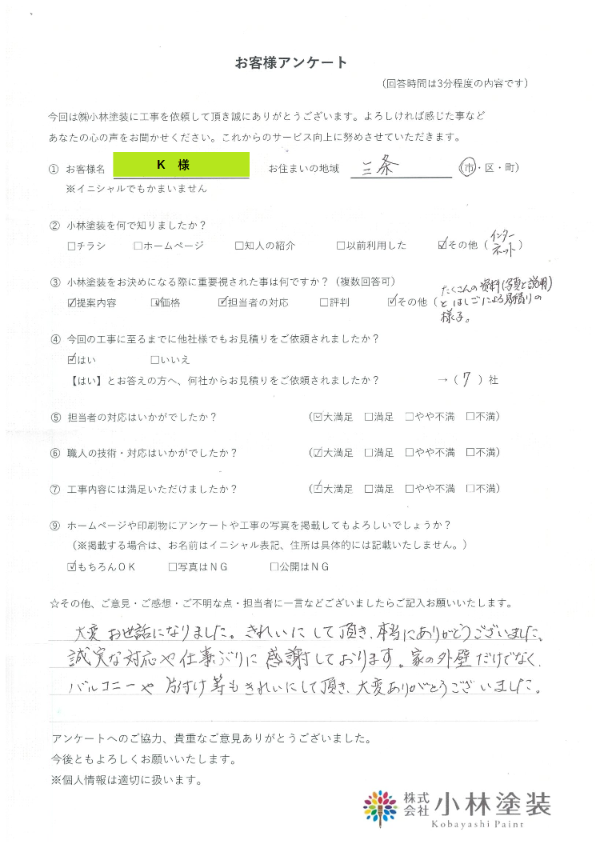 お客様アンケート
（回答時間は3分程度の内容です）
今回は㈱小林塗装に工事を依頼して頂き誠にありがとうございます。よろしければ感じた事など
あなたの心の声をお聞かせください。これからのサービス向上に努めさせていただきます。
① お客様名 K 様 お住まいの地域 三条 （市・区・町）
※イニシャルでもかまいません
② 小林塗装を何で知りましたか？
□チラシ □ホームページ □知人の紹介 □以前利用した ☑その他（インターネット）
③ 小林塗装をお決めになる際に重要視された事は何ですか？（複数回答可）
☑提案内容 ☑価格 ☑担当者の対応 □評判 ☑その他（たくさんの資料（写真と説明）
とはしごによる見積りの
様子。
④ 今回の工事に至るまでに他社様でもお見積りをご依頼されましたか？
☑はい □いいえ
【はい】とお答えの方へ、何社からお見積りをご依頼されましたか？ →（ 7 ）社
⑤ 担当者の対応はいかがでしたか？ （☑大満足 □満足 □やや不満 □不満）
⑥ 職人の技術・対応はいかがでしたか？ （☑大満足 □満足 □やや不満 □不満）
⑦ 工事内容には満足いただけましたか？ （☑大満足 □満足 □やや不満 □不満）
⑨ ホームページや印刷物にアンケートや工事の写真を掲載してもよろしいでしょうか？
（※掲載する場合は、お名前はイニシャル表記、住所は具体的には記載いたしません。）
☑もちろんＯＫ □写真はＮＧ □公開はＮＧ
☆その他、ご意見・ご感想・ご不明な点・担当者に一言などございましたらご記入お願いいたします。
大変お世話になりました。きれいにして頂き、本当にありがとうございました。
誠実な対応や仕事ぶりに感謝しております。家の外壁だけでなく、
バルコニーや片付け等もきれいにして頂き、大変ありがとうございました。
アンケートへのご協力、貴重なご意見ありがとうございました。
今後ともよろしくお願いいたします。
※個人情報は適切に扱います。
株式会社 小林塗装
Kobayashi Paint